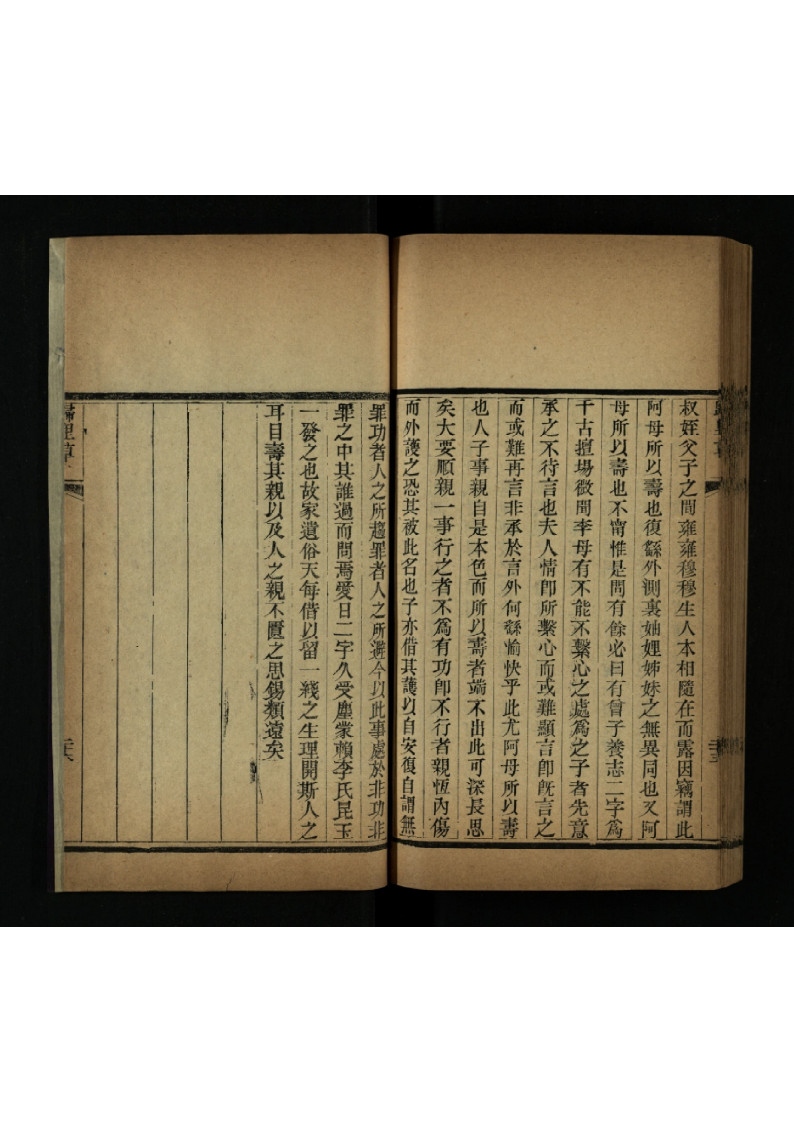 叔姪父子之間雍雍穆穆生人本相隨在而露因竊謂此
阿母所以壽也復繇外測裏妯娌姊妹之無異同也又阿
母所以壽也不甯惟是問有餘必曰有曾子養志二字爲
千古擅場微間李母有不能不繫心之處爲之子者先意
承之不待言也夫人情卽所繫心而或難顯言卽旣言之
而或難再言非承於言外何繇愉快乎此尤阿母所以壽
也人子事親自是本色而所以壽者端不出此可深長思
矣大要順親一事行之者不爲有功卽不行者親恆內傷
而外護之恐其被此名也子亦借其護以自安復自謂無
罪功者人之所趨罪者人之所避今以此事處於非功非
罪之中其誰過而問焉愛日二字久受塵蒙賴李氏昆玉
一發之也故家遺俗天每借以留一綫之生理開斯人之
耳目壽其親以及人之親不匱之思錫類遠矣
歸里草